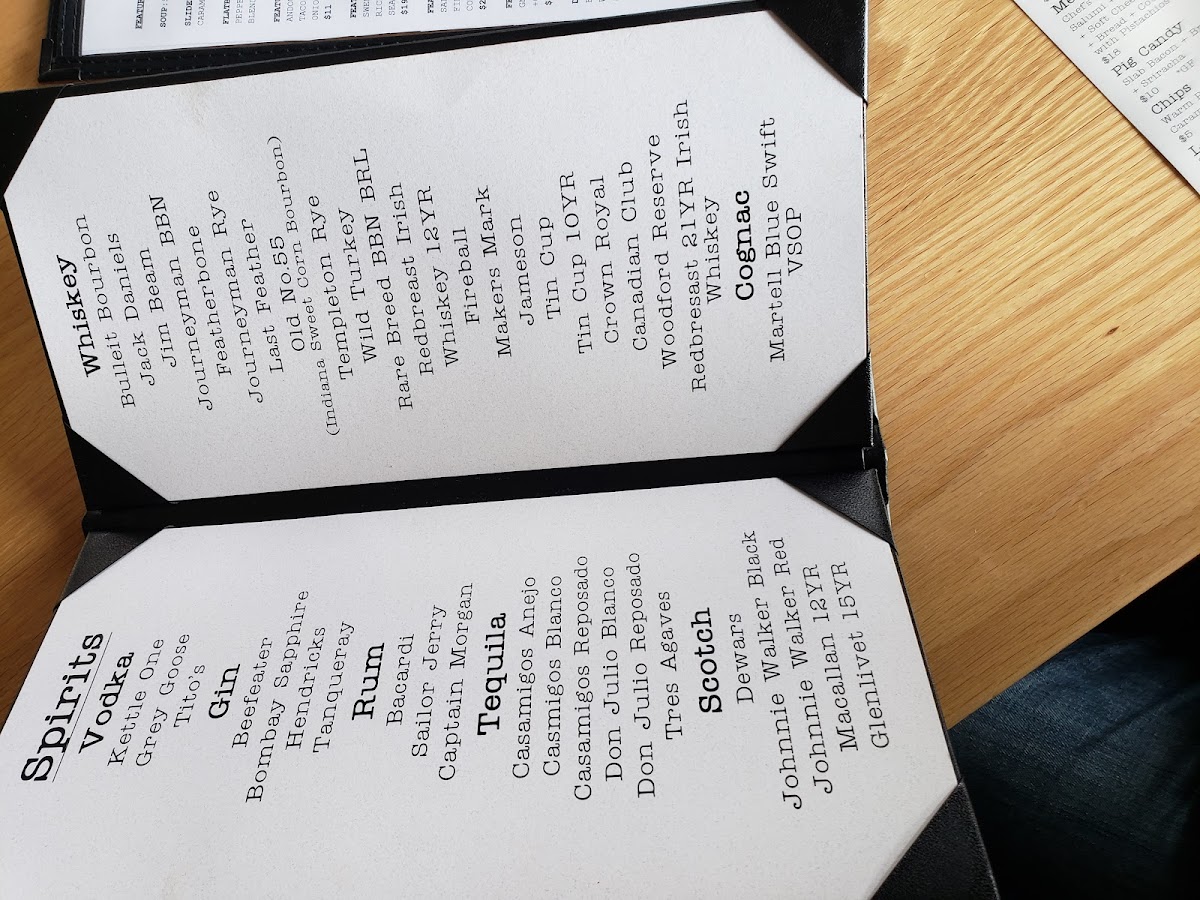 Spirits
Vodka
Kettle One
Grey Goose
Tito's
Gin
Beefeater
Bombay Sapphire
Hendricks
Tanqueray
Rum
Bacardi
Sailor Jerry
Captain Morgan
Tequila
Casamigos Anejo
Casmigos Blanco
Casamigos Reposado
Don Julio Blanco
Don Julio Reposado
Tres Agaves
Scotch
Dewars
Johnnie Walker Black
Johnnie Walker Red
Macallan 12YR
Glenlivet 15YR
Whiskey
Bulleit Bourbon
Jack Daniels
Jim Beam
Journeyman BBN
Featherbone
Journeyman Rye
Last Feather
Old No.55
(Indiana Sweet Corn Bourbon)
Templeton Rye
Wild Turkey
Rare Breed BBN BRL
Redbreast Irish
Whiskey 12YR
Fireball
Makers Mark
Jameson
Tin Cup
Tin Cup 10YR
Crown Royal
Canadian Club
Woodford Reserve
Redbresast 21YR Irish
Whiskey
Cognac
Martell Blue Swift
VSOP
$11
Salumi
+ Soft
+ Bread +
with Pistachios
$18
Pig Candy
Slab Bacon
+ Sriracha
$10 *GF
Chips
Warm
$5